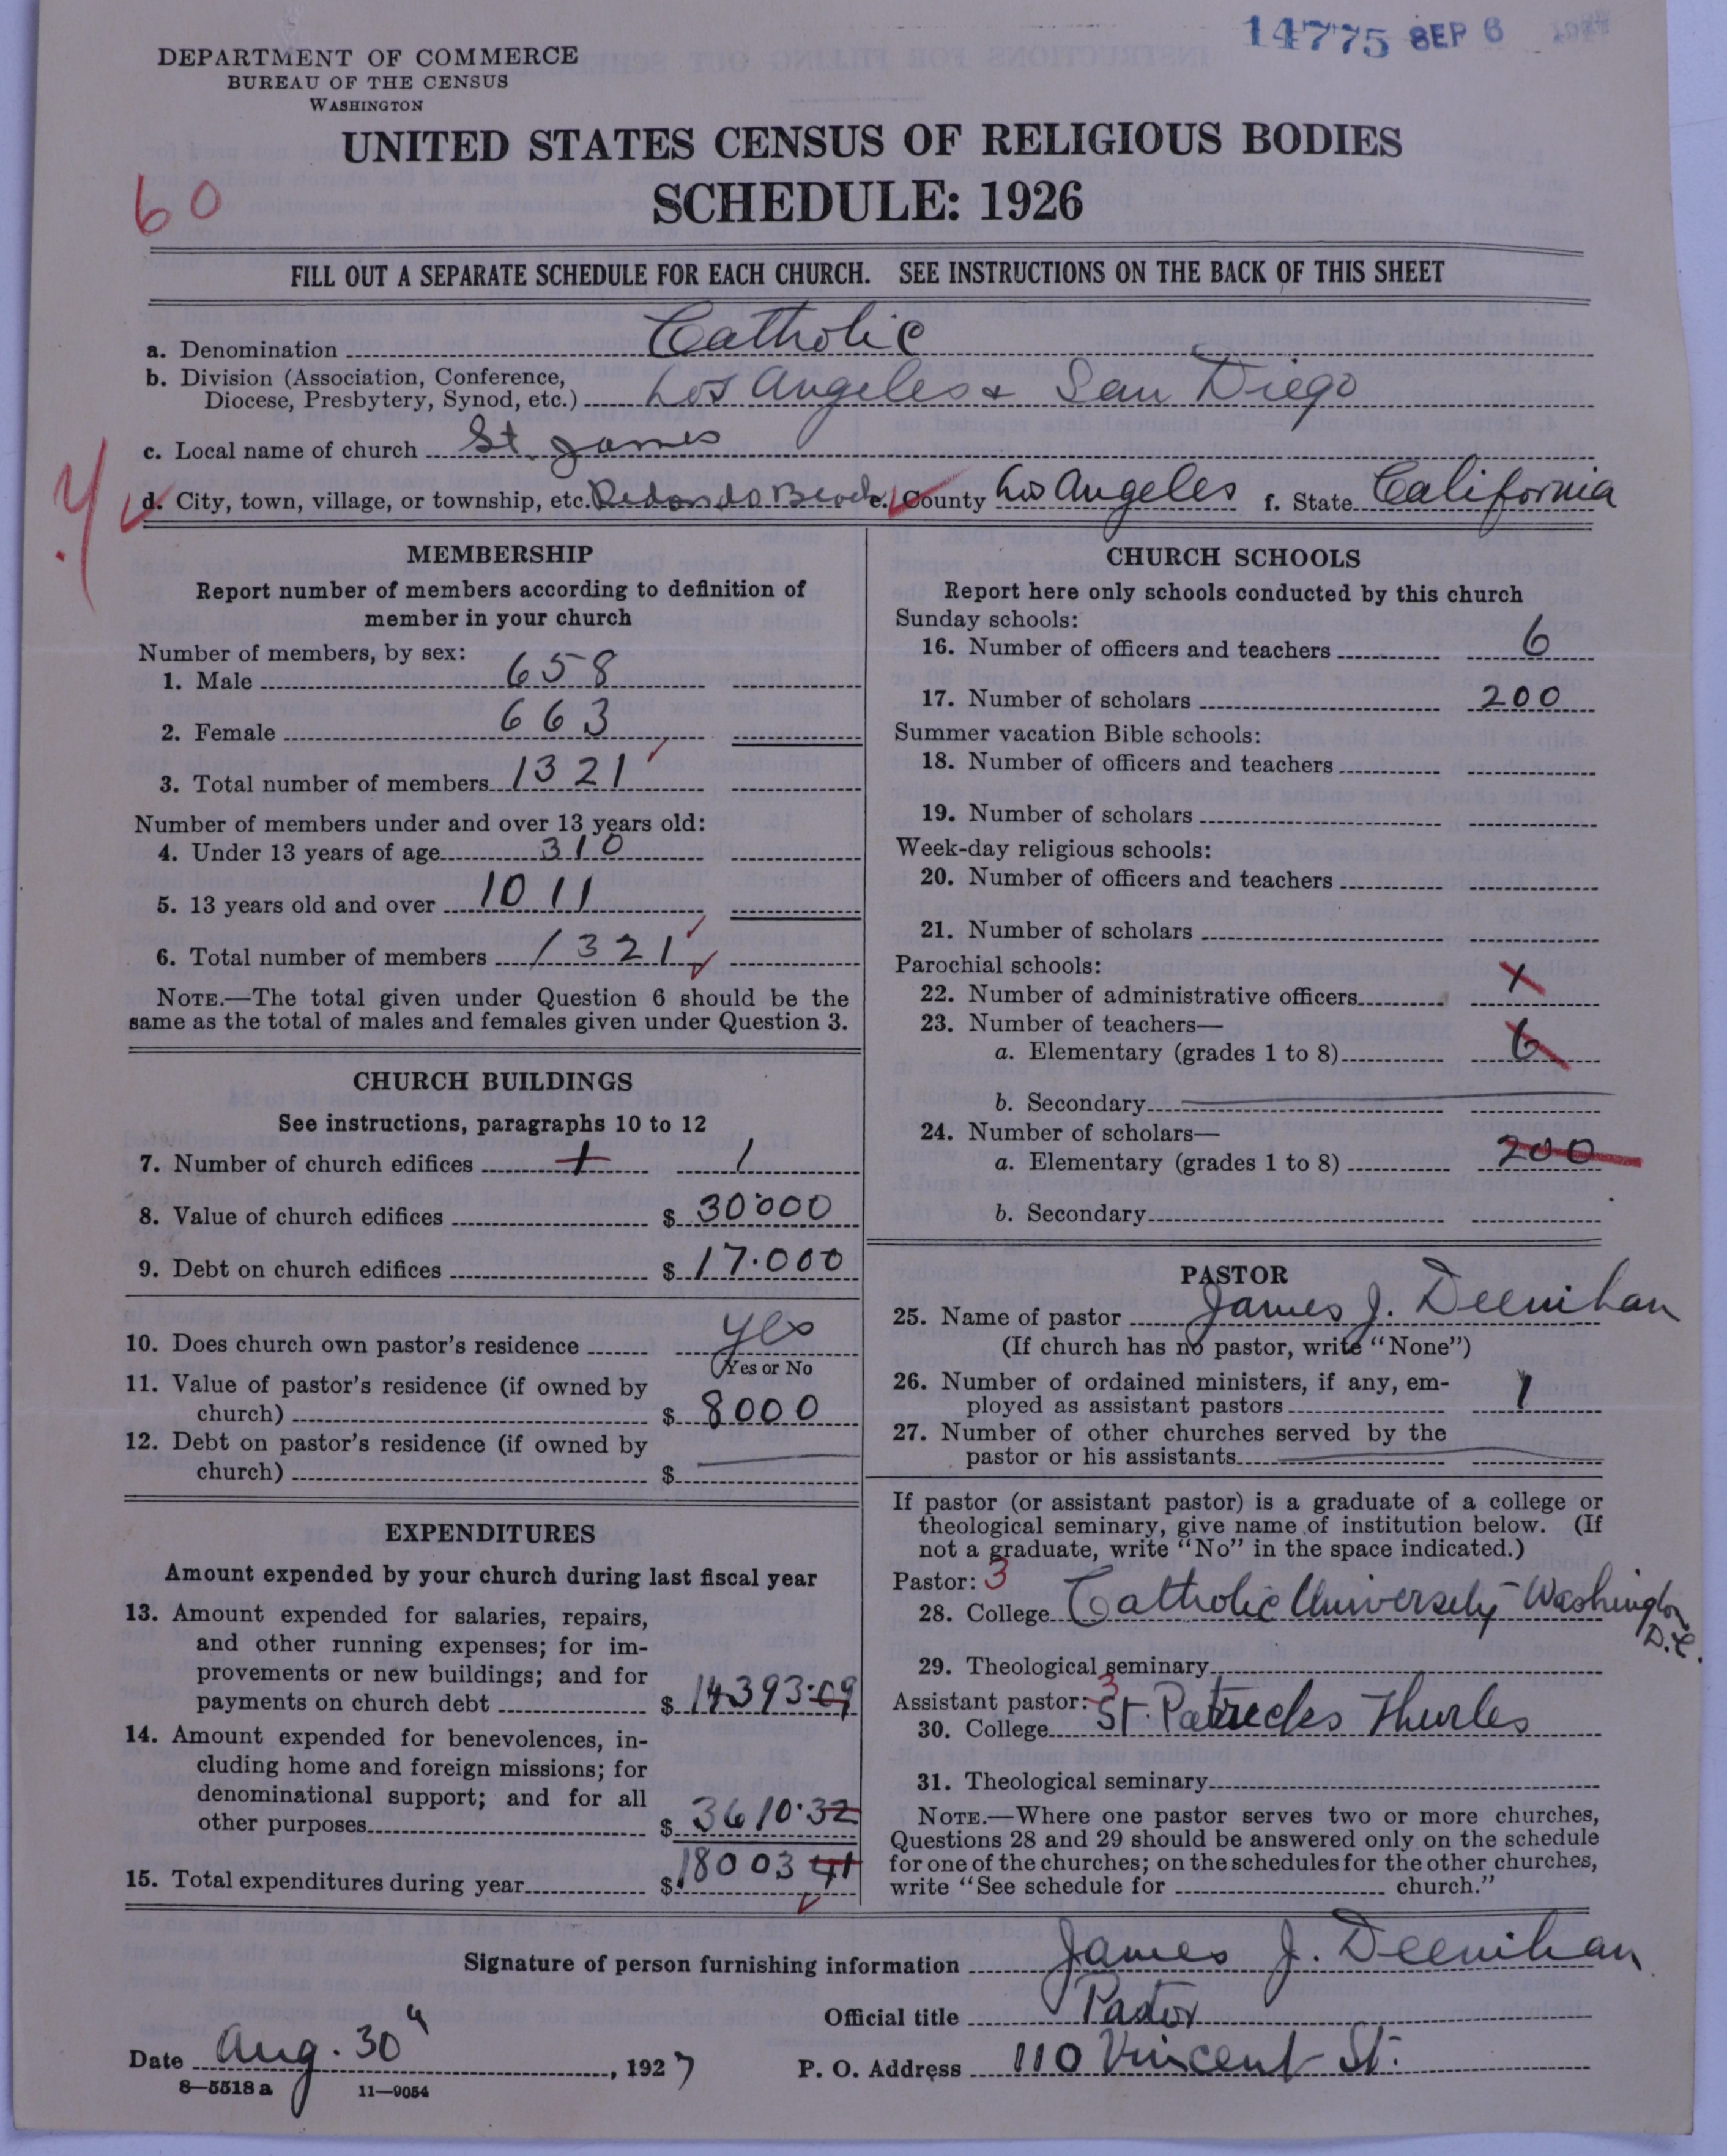 14775 SEP 6 1927
DEPARTMENT OF COMMERCE
BUREAU OF THE CENSUS
WASHINGTON
UNITED STATES CENSUS OF RELIGIOUS BODIES
SCHEDULE: 1926
60
FILL OUT A SEPARATE SCHEDULE FOR EACH CHURCH. SEE INSTRUCTIONS ON THE BACK OF THIS SHEET
a. Denomination Catholic
b. Division (Association, Conference,
Diocese, Presbytery, Synod, etc.) Los Angeles & San Diego
c. Local name of church St. James
d. City, town, village, or township, etc. Redondo Beach e. County Los Angeles f. State California
MEMBERSHIP
Report number of members according to definition of
member in your church
Number of members, by sex:
1. Male 658
2. Female 663
3. Total number of members 1321
Number of members under and over 13 years old:
4. Under 13 years of age 310
5. 13 years old and over 1011
6. Total number of members 1321
NOTE.—The total given under Question 6 should be the
same as the total of males and females given under Question 3.
CHURCH BUILDINGS
See instructions, paragraphs 10 to 12
7. Number of church edifices 1 1
8. Value of church edifices $ 30000
9. Debt on church edifices $ 17.000
10. Does church own pastor's residence yes
(Yes or No
11. Value of pastor's residence (if owned by
church) $ 8000
12. Debt on pastor's residence (if owned by
church) $ —
EXPENDITURES
Amount expended by your church during last fiscal year
13. Amount expended for salaries, repairs,
and other running expenses; for im-
provements or new buildings; and for
payments on church debt $ 14393.09
14. Amount expended for benevolences, in-
cluding home and foreign missions; for
denominational support; and for all
other purposes $ 3610.32
15. Total expenditures during year $ 18003 41
CHURCH SCHOOLS
Report here only schools conducted by this church
Sunday schools:
16. Number of officers and teachers 6
17. Number of scholars 200
Summer vacation Bible schools:
18. Number of officers and teachers
19. Number of scholars
Week-day religious schools:
20. Number of officers and teachers
21. Number of scholars
Parochial schools:
22. Number of administrative officers 1
23. Number of teachers—
a. Elementary (grades 1 to 8) 6
b. Secondary
24. Number of scholars—
a. Elementary (grades 1 to 8) 200
b. Secondary
PASTOR
25. Name of pastor James J. Deenihan
(If church has no pastor, write "None")
26. Number of ordained ministers, if any, em-
ployed as assistant pastors 1
27. Number of other churches served by the
pastor or his assistants
If pastor (or assistant pastor) is a graduate of a college or
theological seminary, give name of institution below. (If
not a graduate, write "No" in the space indicated.)
Pastor: 3
28. College Catholic University - Washington
D.C.
29. Theological seminary
Assistant pastor: 3
30. College St. Patricks Thurles
31. Theological seminary
NOTE.—Where one pastor serves two or more churches,
Questions 28 and 29 should be answered only on the schedule
for one of the churches; on the schedules for the other churches,
write "See schedule for church."
Signature of person furnishing information James J. Deenihan
Official title Pastor
Date Aug. 30, 1927 P. O. Address 110 Vincent St.
8—5518 a 11—9054